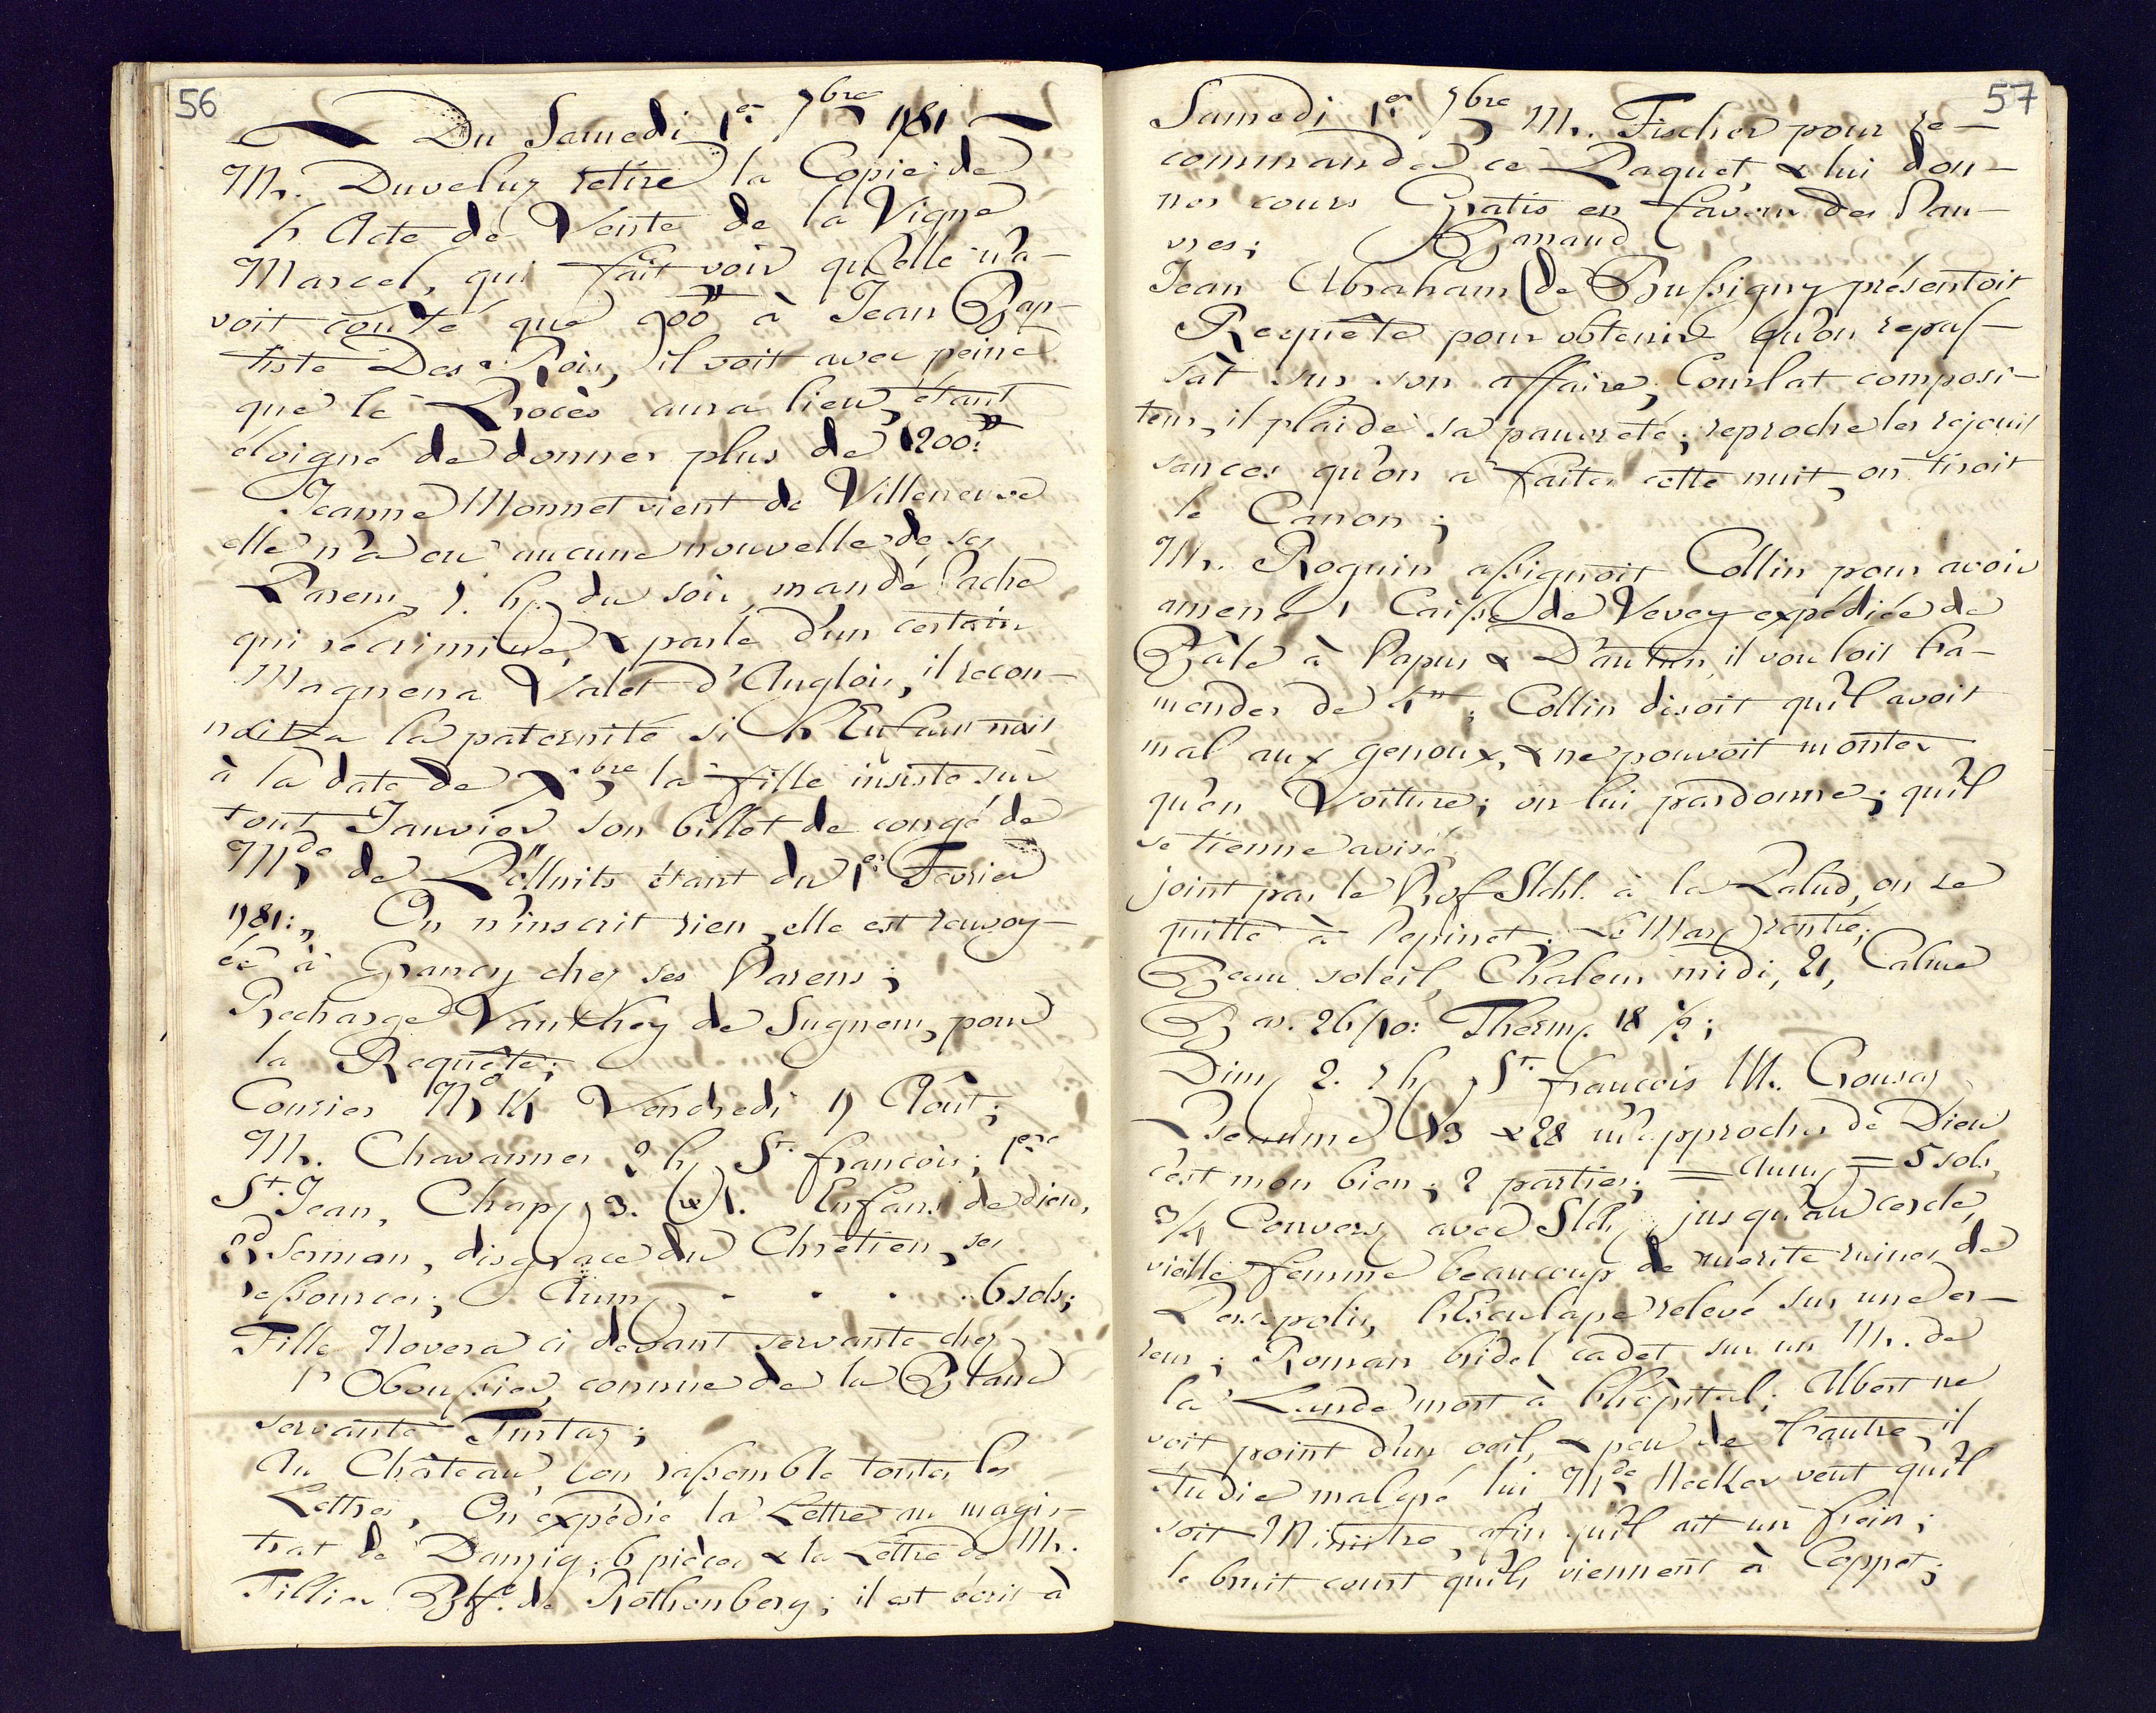 56
Du Samedi 1er 7bre 1781
Mr. Duveluz retire la Copie de
l'Acte de Vente de la Vigne
Marcel, qui fait voir qu'elle n'a-
voit couté que 900" à Jean Bap-
tiste Des Rois, il voit avec peine
que le Procès aura lieu, étant
éloigné de donner plus de 1200."
Jeanne Monnet vient de Villeneuve
elle n'a eu aucune nouvelle de ses
Parens, 5. h. du soir, mandé Pache
qui récrimine, & parle d'un certain
Magnena Valet d'Anglois, il recon-
noitra la paternité si l'Enfant nait
à la date de la fille insiste sur
tout Janvier son billet de congé de
Mde de Pöllnits étant du 1er Fevrier
1781:" On n'inscrit rien, elle est renvoy-
ée à Grancy chez ses Parens;
Recharge Vanthey de Sugnens, pour
la Requête;
Courier No Vendredi 17 Août;
Mr. Chavannes 2 h St. françois; 1ere
St. Jean, Chap. 3. 1. Enfans de dieu,
2d Sermon, disgrace du Chrétien, ses
ressources; Aum . . . . 6 sols;
Fille Novera ci devant servante chez
l'Oboussier, connue de la Blanc
servante Tintaz;
Au Château, l'on rassemble toutes les
Lettres, On expédie la Lettre au magis-
trat de Danzig; 6 pièces & la Lettre de Mr.
Tillier Blf. de Rothenberg; il est écrit à
57
Samedi 1er 7bre Mr. Fischer pour re-
commander ce Paquet, & lui don-
ner cours Gratis en faveur des Pau-
vres;
Barraud
Jean Abraham de Bussigny présentoit
Requête pour obtenir qu'on repas-
sât sur son affaire, Courlat composi-
teur, il plaide sa pauvreté; reproche les rejouis
sances qu'on a faites cette nuit, on tiroit
le Canon;
Mr. Roguin assignoit Collin pour avoir
amené 1 Caisse de Vevey expédiée de
Bâle à Papus & Dautun, il vouloit l'a-
mender de 4", Collin disoit qu'il avoit
mal aux genoux, & ne pouvoit monter
qu'en Voiture; on lui pardonne; qu'il
se tienne avisé
joint par le Prof Stdl. à la Palud, on se
quitte à Pepinet; rentré;
Beau soleil, Chaleur midi, 21, Calme
Bar. 26/10: Therm. 18 1/2;
Dim 2. St. françois Mr. Crousaz
Pseaume 73 & 28 m'approcher de Dieu
c'est mon bien; 2 parties; = Aum = 5 sols,
3/4 Convers avec Stdl, jusqu'au cercle,
vieille femme beaucoup de merite ruines de
Persepolis, l'Esculape relevé sur une er-
reur; Roman bridel cadet sur un Mr. de
la Lande mort à l'hôpital; Albert ne
voit point d'un oeil, & peu de l'autre, il
étudie malgré lui Mde Necker veut qu'il
soit Ministre, afin qu'il ait un frein;
le bruit court qu'ils viennent à Coppet;